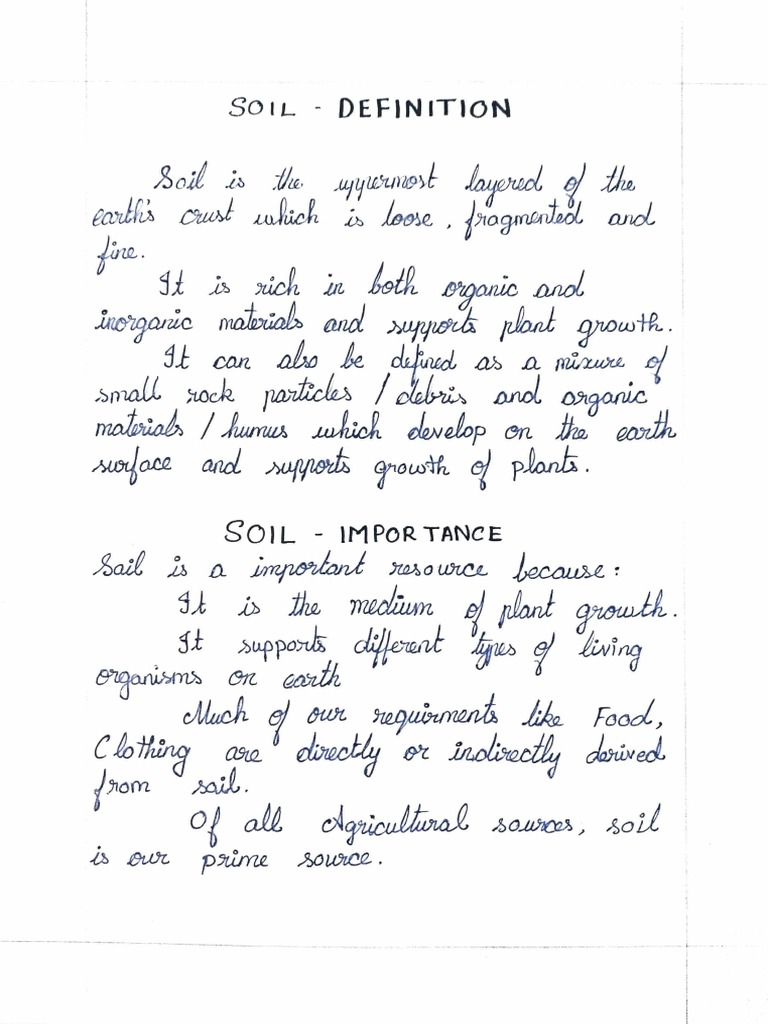 SOIL - DEFINITION
Soil is the uppermost layered of the
earth's crust which is loose, fragmented and
fine.
It is rich in both organic and
inorganic materials and supports plant growth.
It can also be defined as a mixure of
small rock particles / debris and organic
materials / humus which develop on the earth
surface and supports growth of plants.
SOIL - IMPORTANCE
Soil is a important resource because:
It is the medium of plant growth.
It supports different types of living
organisms on earth
Much of our requirments like Food,
Clothing are directly or indirectly derived
from soil.
Of all Agricultural sources, soil
is our prime source.